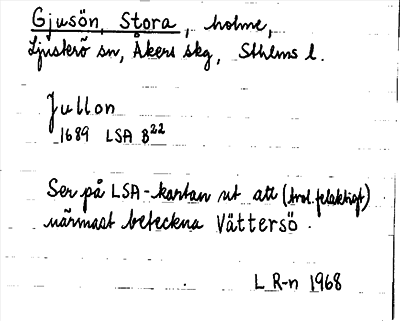 Gjusön, Stora, holme,
Ljusterö sn, Åkers skg, Sthlms l.
Jullon
1689 LSA B22
Ser på LSA-kartan ut att (trol. felaktigt)
närmast beteckna Vättersö.
L R-n 1968